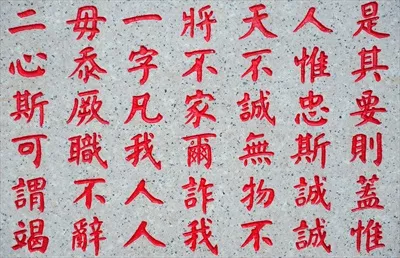 是其要則蓋惟
人惟忠斯誠誠
天不誠無物不
將不家爾詐我
一字凡我人人
毋忝厥職不辭
二心斯可謂竭